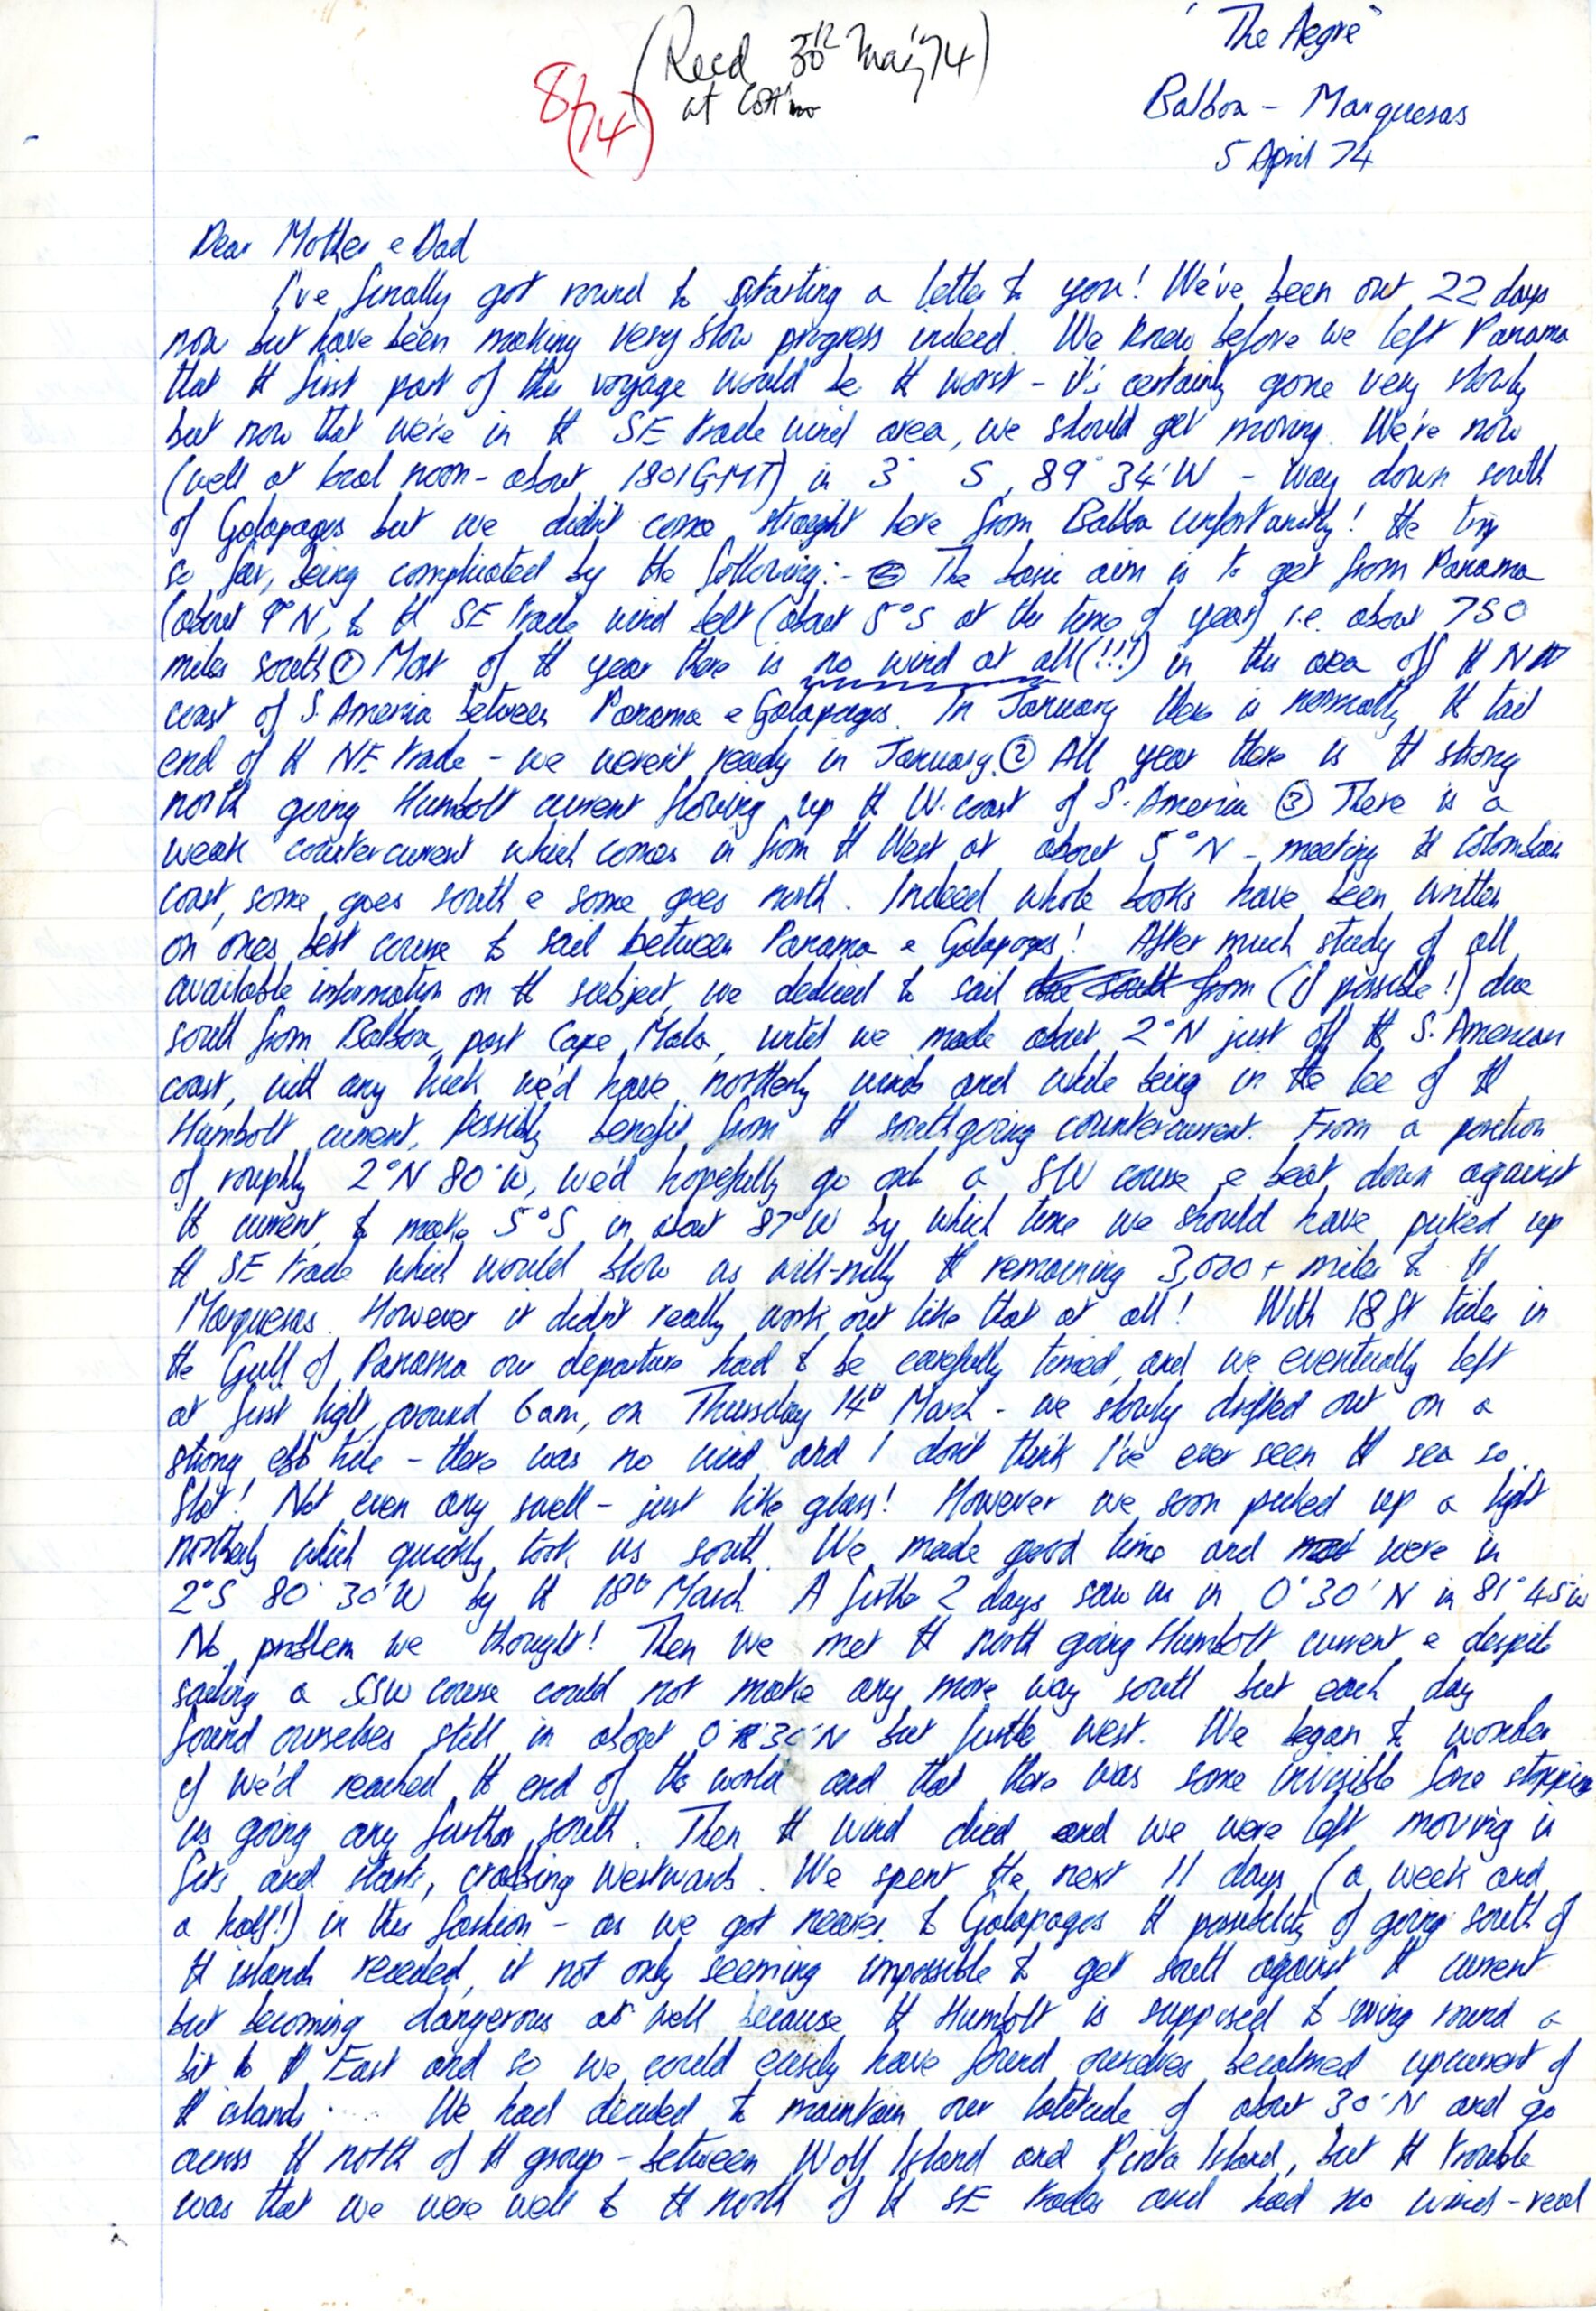 "The Aegre"
(Recd 30th May '74)
at
8/74)
Balboa - Marquesas
5 April 74
Dear Mother & Dad
I've finally got round to starting a letter to you! We've been out 22 days
now but have been making very slow progress indeed. We knew before we left Panama
that the first part of this voyage would be the worst - it's certainly gone very slowly
but now that we're in the SE trade wind area, we should get moving. We're now
(well at local noon - about 1801GMT) in 3° S, 89° 34'W - way down south
of Galapagos but we didn't come straight here from Balboa unfortunately! the trip
so far, being complicated by the following:- The basic aim is to get from Panama
(about 9°N, to the SE trade wind belt (about 5°S at this time of year) i.e. about 750
miles south ① Most of the year there is no wind at all(!!!) in this area off the NW
coast of S. America between Panama & Galapagos. In January there is normally the tail
end of the NE trade - we weren't ready in January. ② All year there is the strong
north going Humbolt current flowing up the W. coast of S. America ③ There is a
weak countercurrent which comes in from the West at about 5°N - meeting the Colombian
coast, some goes south & some goes north. Indeed whole books have been written
on ones best course to sail between Panama & Galapagos! After much study of all
available information on the subject, we decided to sail due south from (if possible!) due
south from Balboa, past Cape Mala, until we made about 2°N just off the S. American
coast, with any luck we'd have northerly winds and while being in the lee of the
Humbolt current, possibly benefit from the southgoing countercurrent. From a position
of roughly 2°N 80°W, we'd hopefully go onto a SW course & beat down against
the current to make 5°S in about 87°W by which time we should have picked up
the SE trade which would blow us willi-nilly the remaining 3,000+ miles to the
Marquesas. However it didn't really work out like that at all! With 18 ft tides in
the Gulf of Panama our departure had to be carefully timed, and we eventually left
at first light, around 6am, on Thursday 14th March - we slowly drifted out on a
strong ebb tide - there was no wind and I don't think I've ever seen the sea so
flat! Not even any swell - just like glass! However we soon picked up a light
northerly which quickly took us south. We made good time and were in
2°S 80° 30'W by the 18th March. A further 2 days saw us in 0°30'N in 81°45'W
No problem we thought! Then we met the north going Humbolt current & despite
sailing a SSW course could not make any more way south but each day
found ourselves still in about 0°30'N but further west. We began to wonder
if we'd reached the end of the world and that there was some invisible force stopping
us going any further south. Then the wind died and we were left moving in
fits and starts, crabbing westwards. We spent the next 11 days (a week and
a half!) in this fashion - as we got nearer to Galapagos the possibility of going south of
the islands receded, it not only seeming impossible to get south against the current
but becoming dangerous as well because the Humbolt is supposed to swing round a
bit to the East and so we could easily have found ourselves becalmed upcurrent of
the islands.... We had decided to maintain our latitude of about 30'N and go
across the north of the group - between Wolf Island and Pinta Island, but the trouble
was that we were well to the north of the SE trades and had no wind - real